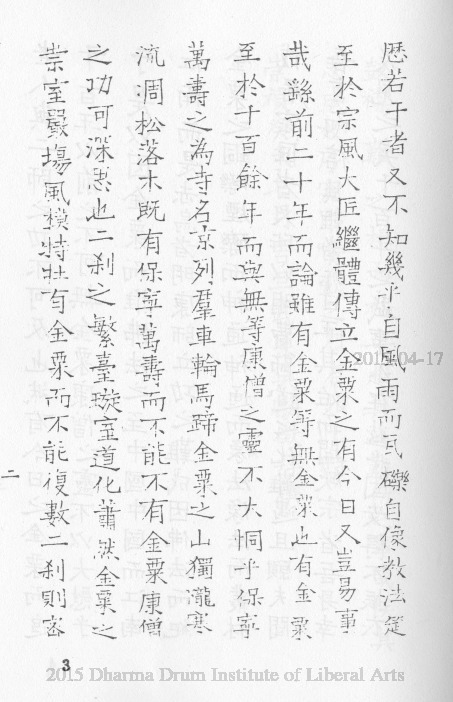 歷若干者又不知幾乎自風雨而瓦礫自像教法筵
至於宗風大匠繼體傳立金粟之有今日又豈易事
哉繇前二十年而論雖有金粟等無金粟也有金粟
至於十百餘年而與無等康僧之靈不大恫乎保寧
萬壽之為寺名京列羣車輪馬蹄金粟之山獨瀧寒
流凋松落木既有保寧萬壽而不能不有金粟康僧
之功可深思也二刹之繁臺璇室道化蕭然金粟之
崇室嚴塲風模特壯有金粟而不能復數二刹則客
二
3
2015-04-17
2015 Dharma Drum Institute of Liberal Arts